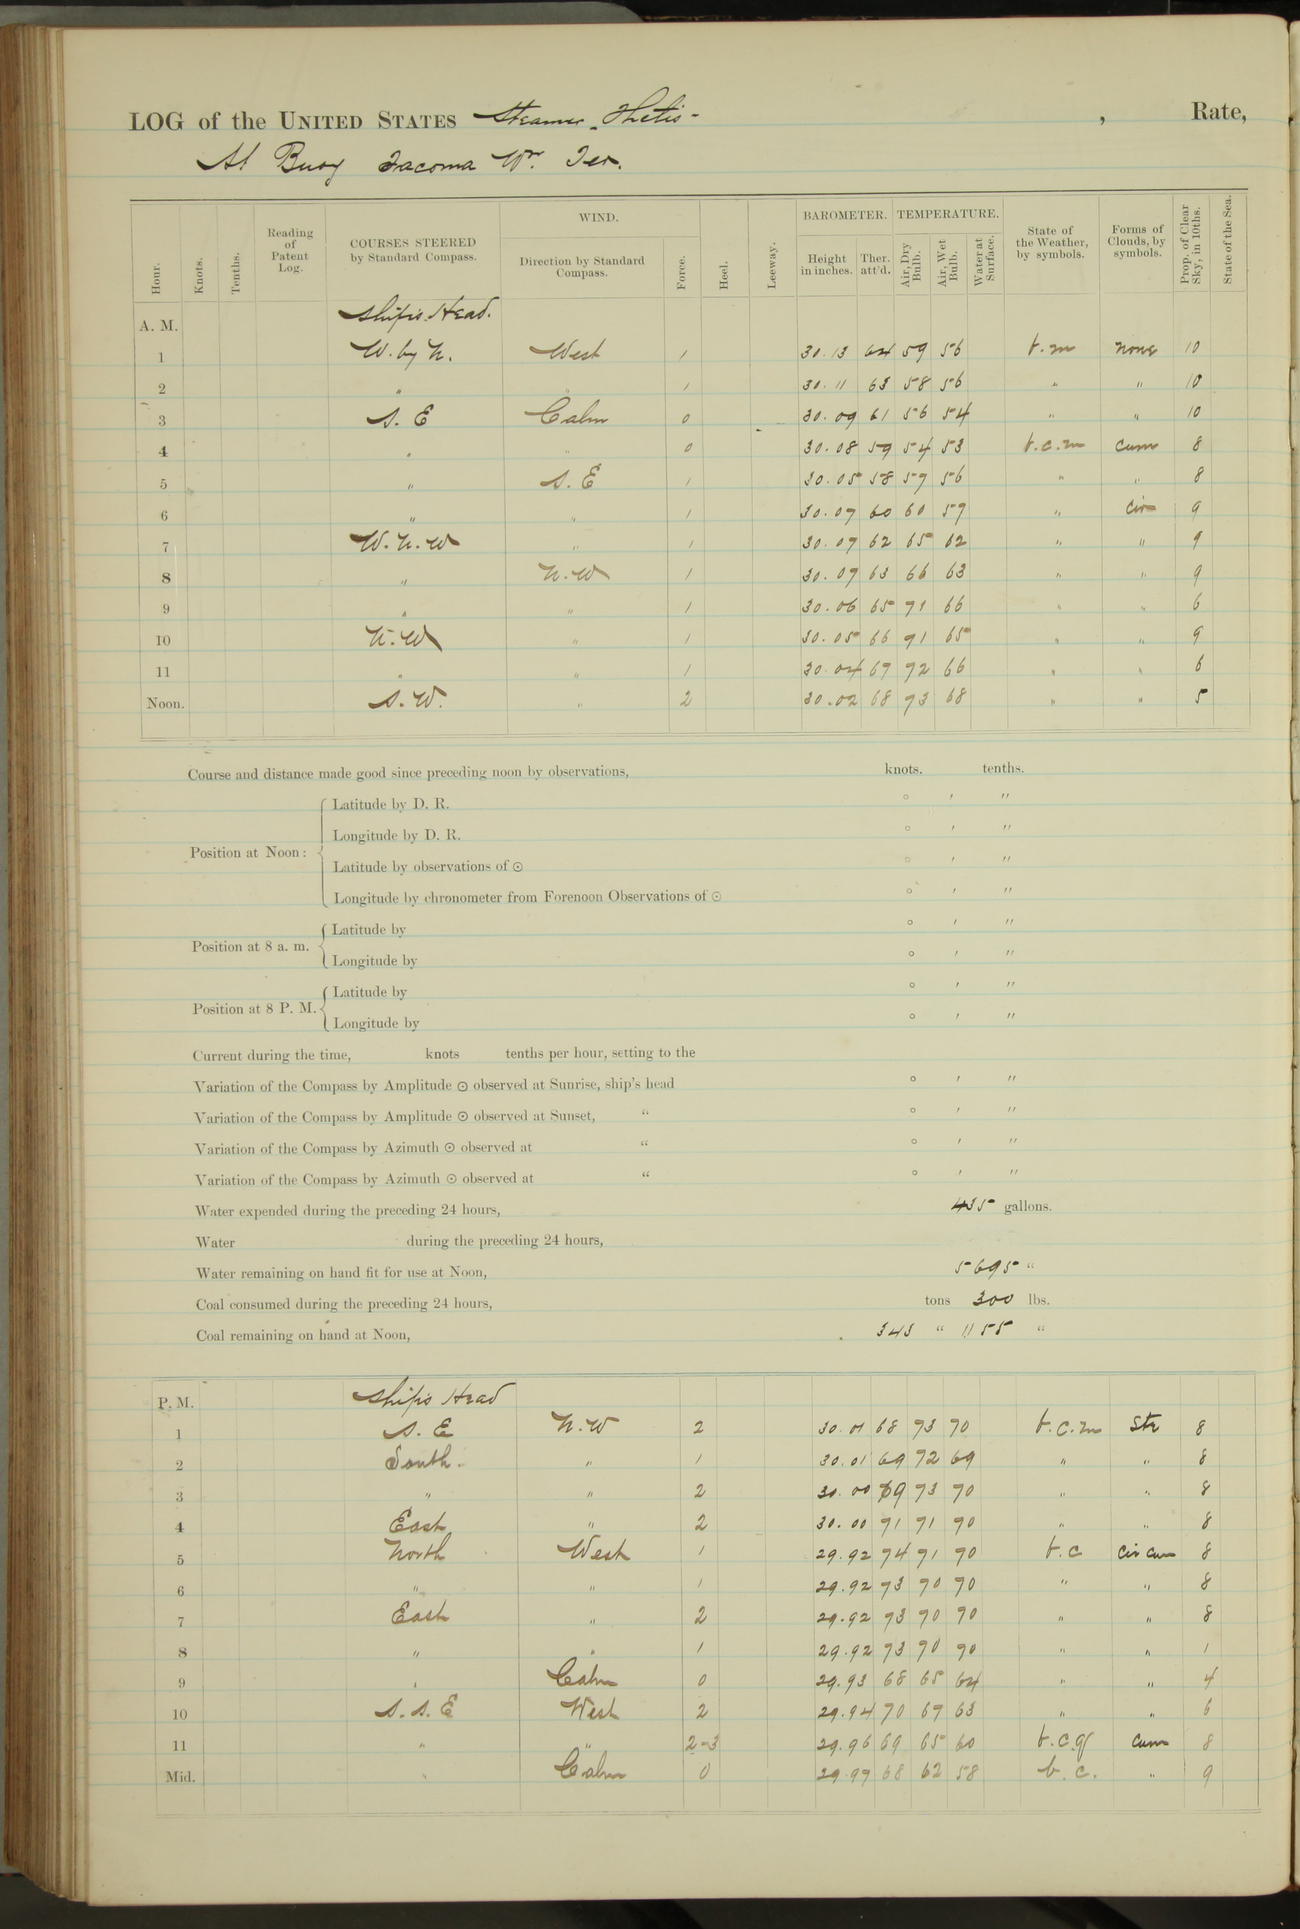 LOG of the UNITED STATES Steamer Thetis - , Rate,
At Buoy Tacoma Wn. Ter.
Hour. Knots. Tenths. Reading of Patent Log. COURSES STEERED by Standard Compass. WIND. Direction by Standard Compass. Force. Heel. Leeway. BAROMETER. Height in inches. Ther. att'd. TEMPERATURE. Air, Dry Bulb. Air, Wet Bulb. Water at Surface. State of the Weather, by symbols. Forms of Clouds, by symbols. Prop. of Clear Sky, in 10ths. State of the Sea.
A. M. Ship's Head.
1 W. by N. West 1 30.13 64 59 56 b.m none 10
2 " " 1 30.11 63 58 56 " " 10
3 S. E Calm 0 30.09 61 56 54 " " 10
4 " " 0 30.08 59 54 53 b.c.m cum 8
5 " S. E 1 30.05 58 57 56 " " 8
6 " " 1 30.07 60 60 59 " cir 9
7 W.N.W " 1 30.07 62 65 62 " " 9
8 " N.W 1 30.07 63 66 63 " " 9
9 " " 1 30.06 65 71 66 " " 6
10 N.W " 1 30.05 66 71 65 " " 9
11 " " 1 30.04 67 72 66 " " 6
Noon. S.W. " 2 30.02 68 73 68 " " 5
Course and distance made good since preceding noon by observations, knots. tenths.
Latitude by D. R. ° ′ ″
Longitude by D. R. ° ′ ″
Position at Noon:
Latitude by observations of ☉ ° ′ ″
Longitude by chronometer from Forenoon Observations of ☉ ° ′ ″
Latitude by ° ′ ″
Position at 8 a. m.
Longitude by ° ′ ″
Latitude by ° ′ ″
Position at 8 P. M.
Longitude by ° ′ ″
Current during the time, knots tenths per hour, setting to the
Variation of the Compass by Amplitude ☉ observed at Sunrise, ship's head ° ′ ″
Variation of the Compass by Amplitude ☉ observed at Sunset, " ° ′ ″
Variation of the Compass by Azimuth ☉ observed at " ° ′ ″
Variation of the Compass by Azimuth ☉ observed at " ° ′ ″
Water expended during the preceding 24 hours, 435 gallons.
Water during the preceding 24 hours,
Water remaining on hand fit for use at Noon, 5695 "
Coal consumed during the preceding 24 hours, tons 300 lbs.
Coal remaining on hand at Noon, 343 " 1155 "
P. M. Ship's Head
1 S. E N.W 2 30.01 68 73 70 b.c.m Str 8
2 South. " 1 30.01 69 72 69 " " 8
3 " " 2 30.00 69 73 70 " " 8
4 East " 2 30.00 71 71 70 " " 8
5 North West 1 29.92 74 71 70 b.c cir cum 8
6 " " 1 29.92 73 70 70 " " 8
7 East " 2 29.92 73 70 70 " " 8
8 " " 1 29.92 73 70 70 " " 1
9 " Calm 0 29.93 68 65 64 " " 4
10 S.S.E West 2 29.94 70 67 63 " " 6
11 " " 2-3 29.96 69 65 60 b.c.q cum 8
Mid. " Calm 0 29.97 68 62 58 b.c. " 9